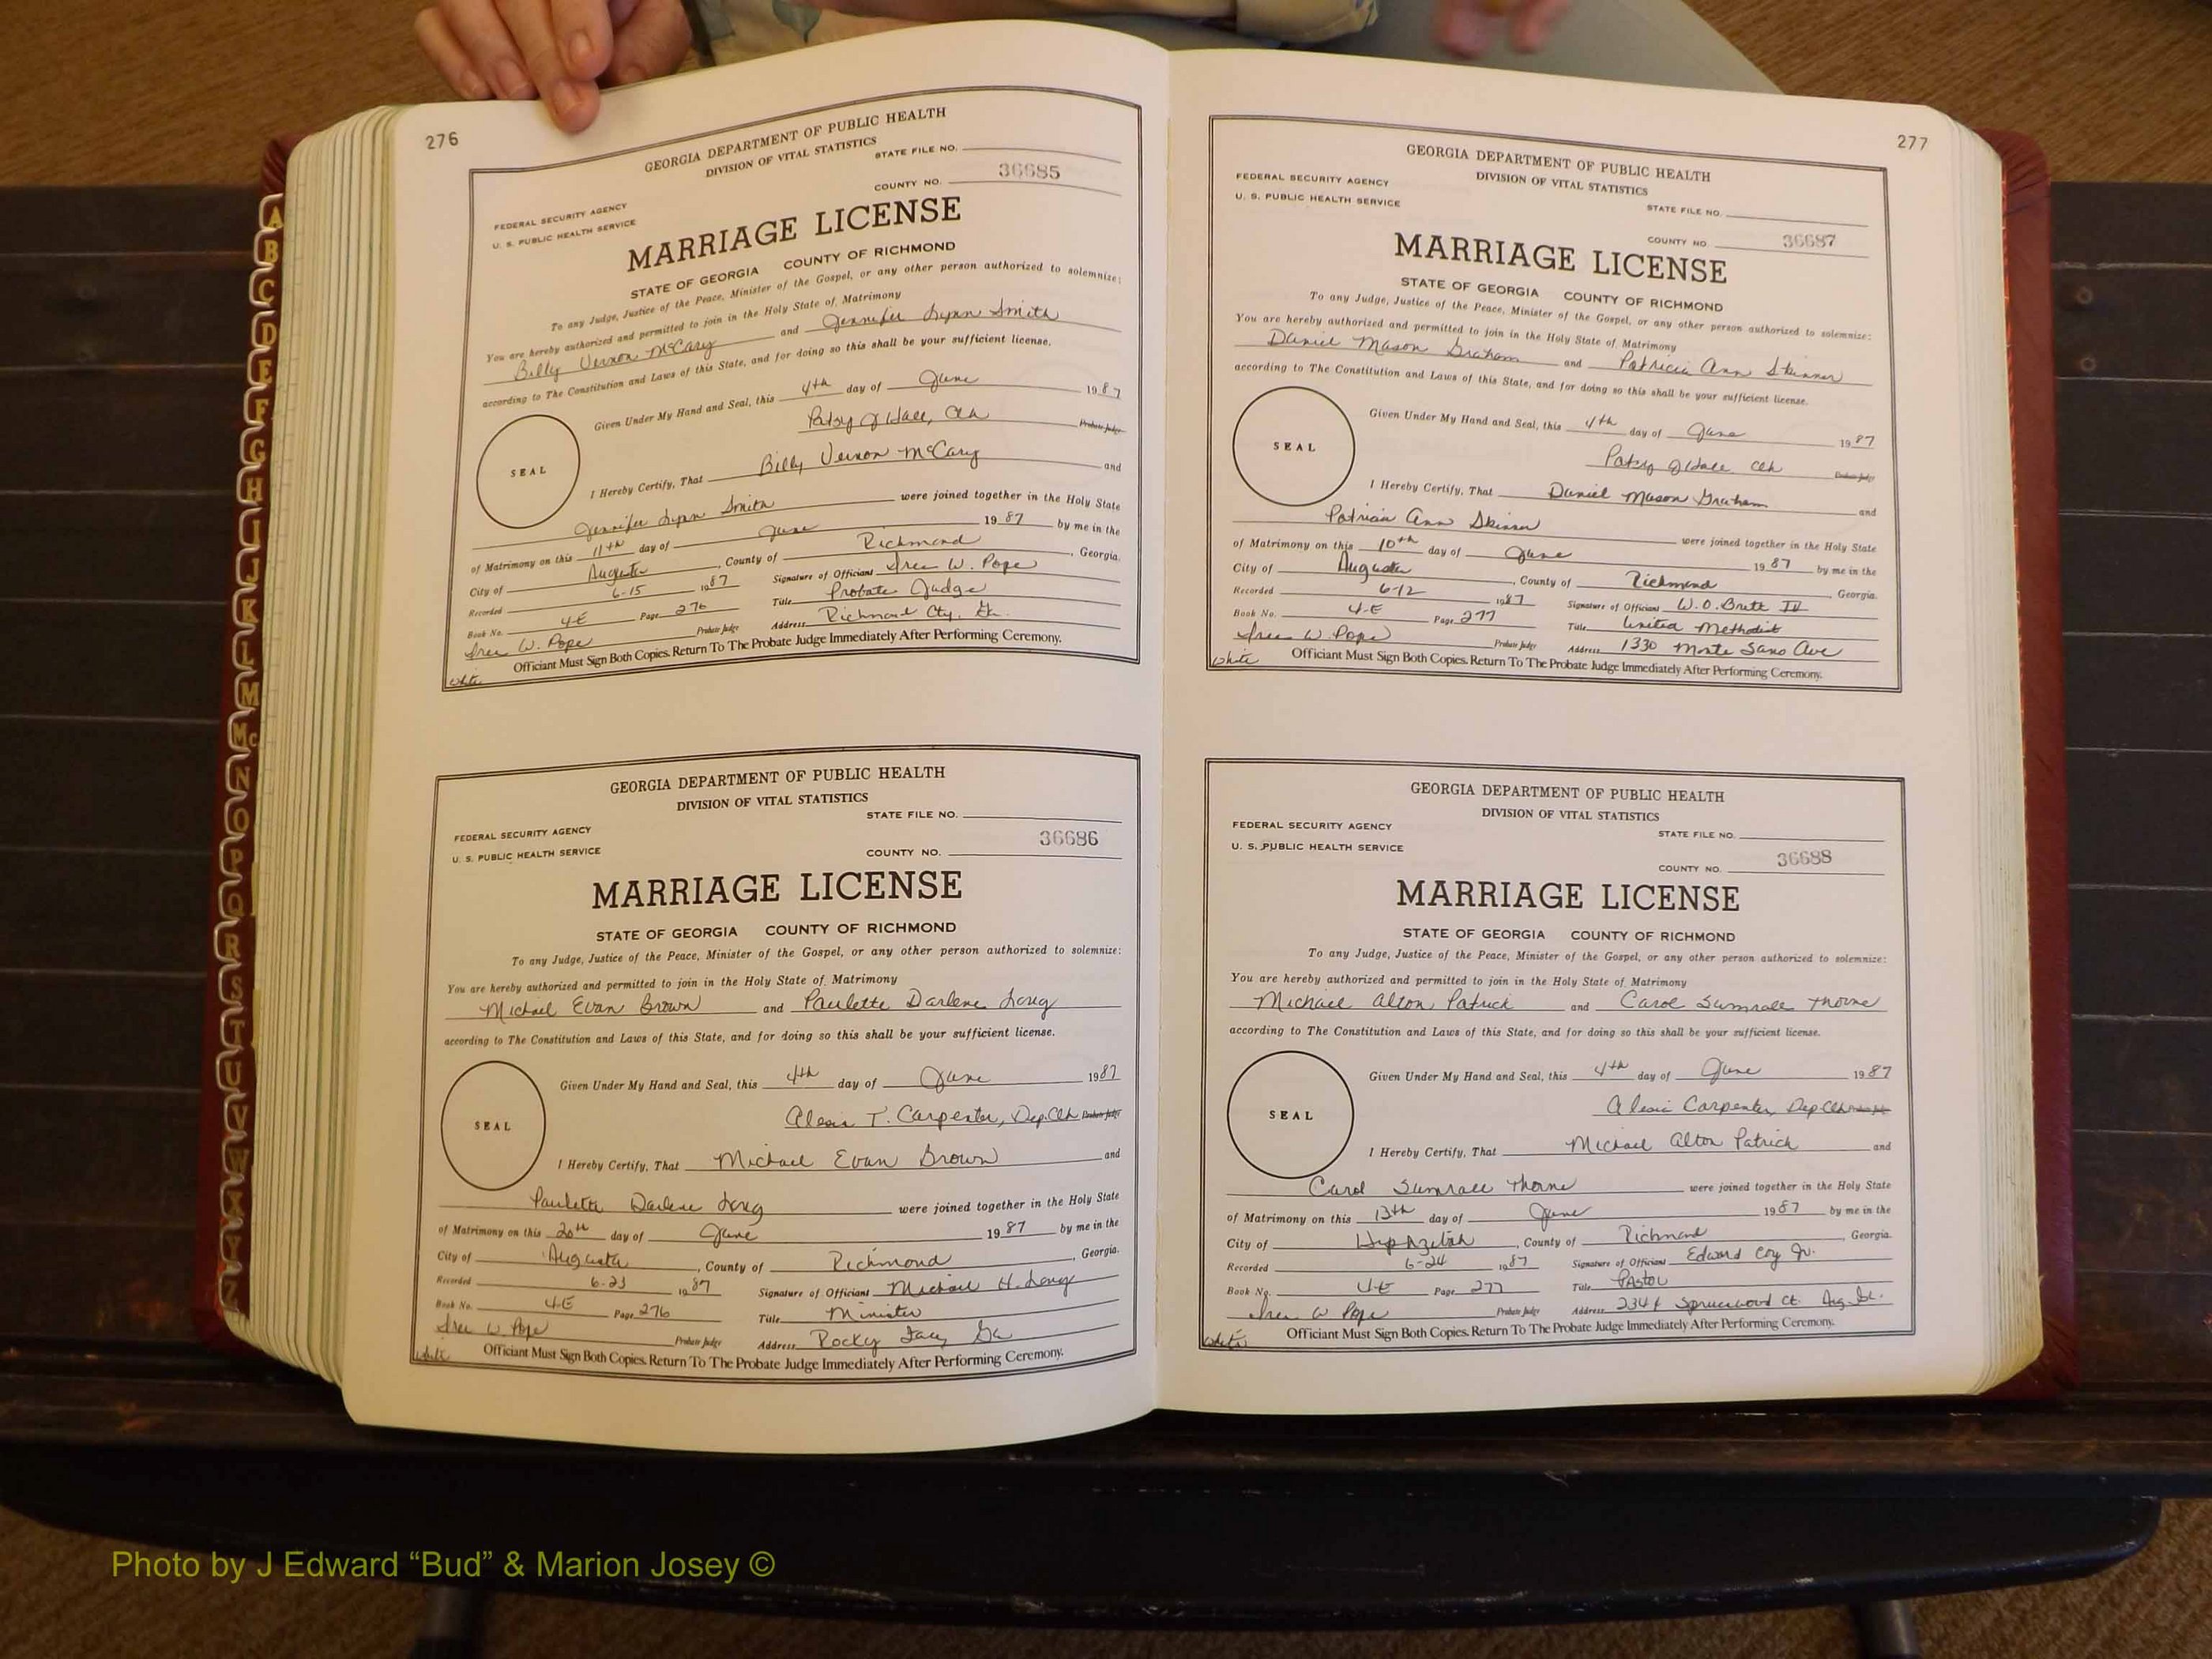 276
GEORGIA DEPARTMENT OF PUBLIC HEALTH
DIVISION OF VITAL STATISTICS
STATE FILE NO.
36685
COUNTY NO.
FEDERAL SECURITY AGENCY
U. S. PUBLIC HEALTH SERVICE
MARRIAGE LICENSE
STATE OF GEORGIA COUNTY OF RICHMOND
To any Judge, Justice of the Peace, Minister of the Gospel, or any other person authorized to solemnize:
You are hereby authorized and permitted to join in the Holy State of Matrimony
Billy Vernon McCary and Jennifer Lynn Smith
according to The Constitution and Laws of this State, and for doing so this shall be your sufficient license.
Given Under My Hand and Seal, this 4th day of June 1987
Patsy J Hall, Clk Probate Judge
SEAL
I Hereby Certify, That Billy Vernon McCary and
Jennifer Lynn Smith were joined together in the Holy State
of Matrimony on this 11th day of June 1987 by me in the
City of Augusta, County of Richmond, Georgia.
Recorded 6-15 1987 Signature of Officiant W. Pope
Book No. 4-E Page 276 Title Probate Judge
W. Pope Probate Judge Address Richmond Cty. Ga.
Officiant Must Sign Both Copies. Return To The Probate Judge Immediately After Performing Ceremony.
White
GEORGIA DEPARTMENT OF PUBLIC HEALTH
DIVISION OF VITAL STATISTICS
STATE FILE NO.
FEDERAL SECURITY AGENCY
36686
U. S. PUBLIC HEALTH SERVICE
COUNTY NO.
MARRIAGE LICENSE
STATE OF GEORGIA COUNTY OF RICHMOND
To any Judge, Justice of the Peace, Minister of the Gospel, or any other person authorized to solemnize:
You are hereby authorized and permitted to join in the Holy State of Matrimony
Michael Evan Brown and Paulette Darlene Long
according to The Constitution and Laws of this State, and for doing so this shall be your sufficient license.
Given Under My Hand and Seal, this 4th day of June 1987
T. Carpenter, Dep. Clk Probate Judge
SEAL
I Hereby Certify, That Michael Evan Brown and
Paulette Darlene Long were joined together in the Holy State
of Matrimony on this 20th day of June 1987 by me in the
City of Augusta, County of Richmond, Georgia.
Recorded 6-23 1987 Signature of Officiant Michael H. Long
Book No. 4E Page 276 Title Minister
W. Pope Probate Judge Address Rocky Face, Ga
Officiant Must Sign Both Copies. Return To The Probate Judge Immediately After Performing Ceremony.
White
277
GEORGIA DEPARTMENT OF PUBLIC HEALTH
DIVISION OF VITAL STATISTICS
FEDERAL SECURITY AGENCY
U. S. PUBLIC HEALTH SERVICE
STATE FILE NO.
COUNTY NO. 36687
MARRIAGE LICENSE
STATE OF GEORGIA COUNTY OF RICHMOND
To any Judge, Justice of the Peace, Minister of the Gospel, or any other person authorized to solemnize:
You are hereby authorized and permitted to join in the Holy State of Matrimony
Daniel Mason Graham and Patricia Ann Skinner
according to The Constitution and Laws of this State, and for doing so this shall be your sufficient license.
Given Under My Hand and Seal, this 4th day of June 1987
Patsy J Hall Clk Probate Judge
SEAL
I Hereby Certify, That Daniel Mason Graham and
Patricia Ann Skinner were joined together in the Holy State
of Matrimony on this 10th day of June 1987 by me in the
City of Augusta, County of Richmond, Georgia.
Recorded 6-12 1987 Signature of Officiant W. O.
Book No. 4-E Page 277 Title United Methodist
W. Pope Probate Judge Address 1330 Monte Sano Ave
Officiant Must Sign Both Copies. Return To The Probate Judge Immediately After Performing Ceremony.
White
GEORGIA DEPARTMENT OF PUBLIC HEALTH
DIVISION OF VITAL STATISTICS
FEDERAL SECURITY AGENCY
STATE FILE NO.
U. S. PUBLIC HEALTH SERVICE
COUNTY NO. 36688
MARRIAGE LICENSE
STATE OF GEORGIA COUNTY OF RICHMOND
To any Judge, Justice of the Peace, Minister of the Gospel, or any other person authorized to solemnize:
You are hereby authorized and permitted to join in the Holy State of Matrimony
Michael Alton Patrick and Carol Sumrall Thorne
according to The Constitution and Laws of this State, and for doing so this shall be your sufficient license.
Given Under My Hand and Seal, this 4th day of June 1987
Carpenter, Dep. Clk Probate Judge
SEAL
I Hereby Certify, That Michael Alton Patrick and
Carol Sumrall Thorne were joined together in the Holy State
of Matrimony on this 13th day of June 1987 by me in the
City of Hephzibah, County of Richmond, Georgia.
Recorded 6-24 1987 Signature of Officiant Edward Coy Jr.
Book No. 4-E Page 277 Title Pastor
W Pope Probate Judge Address 2344 Sprucewood Ct. Aug. Ga.
Officiant Must Sign Both Copies. Return To The Probate Judge Immediately After Performing Ceremony.
White
A
B
C
D
E
F
G
H
I
J
K
L
M
Mc
N
O
P
Q
R
S
T
U
V
W
X
Y
Z
Photo by J Edward “Bud” & Marion Josey ©